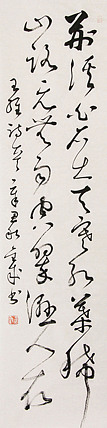 荆溪白石出天寒紅葉稀
山路元無雨空翠濕人衣
王維詩
書